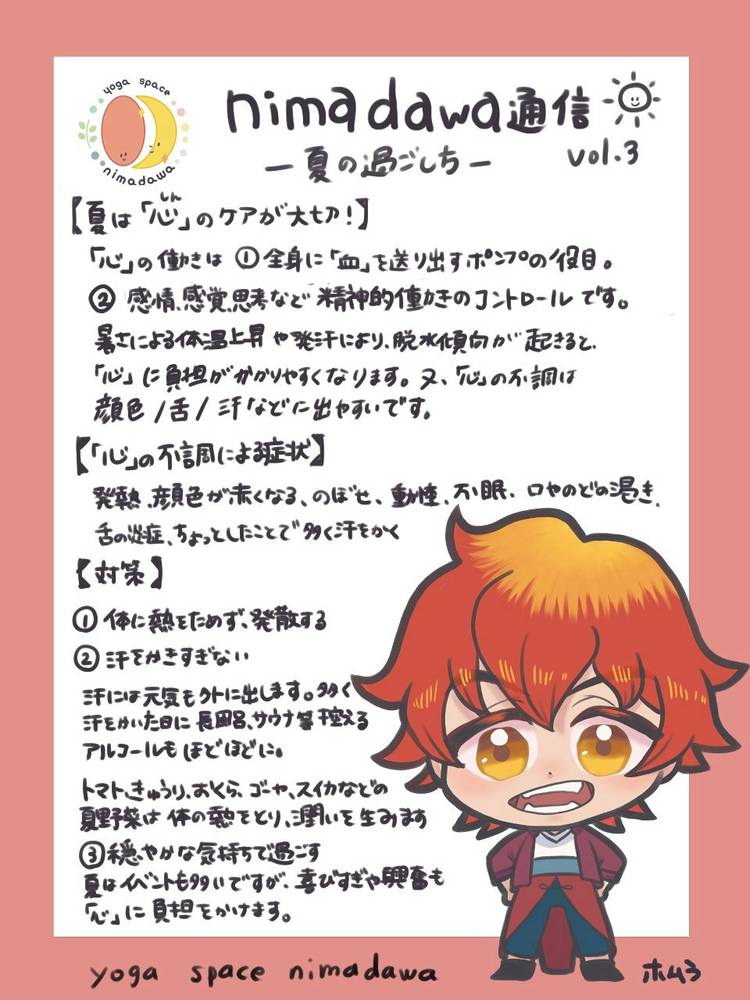 yoga space
nimadawa
nimadawa通信
vol.3
ー夏の過ごしちー
【夏は「心」のケアが大切!】
しん
「心」の働きは ①全身に「血」を送り出すポンプの役目。
② 感情、感覚、思考など 精神的働きのコントロールです。
暑さによる体温上昇や発汗により、脱水傾向が起きると、
「心」に負担がかかりやすくなります。又、「心」の不調は
顔色/舌/汗などに出やすいです。
【「心」の不調による症状】
発熱、顔色が赤くなる、のぼせ、動悸、不眠、口やのどの渇き、
舌の炎症、ちょっとしたことで多く汗をかく
【対策】
① 体に熱をためず、発散する
② 汗をかきすぎない
汗には元気も外に出します。多く
汗をかいた日に長風呂、サウナ等控える
アルコールもほどほどに。
トマト、きゅうり、おくら、ゴーヤ、スイカなどの
夏野菜は体の熱をとり、潤いを生みます
③穏やかな気持ちで過ごす
夏はイベントも多いですが、喜びすぎや興奮も
「心」に負担をかけます。
yoga space nimadawa
ホムラ